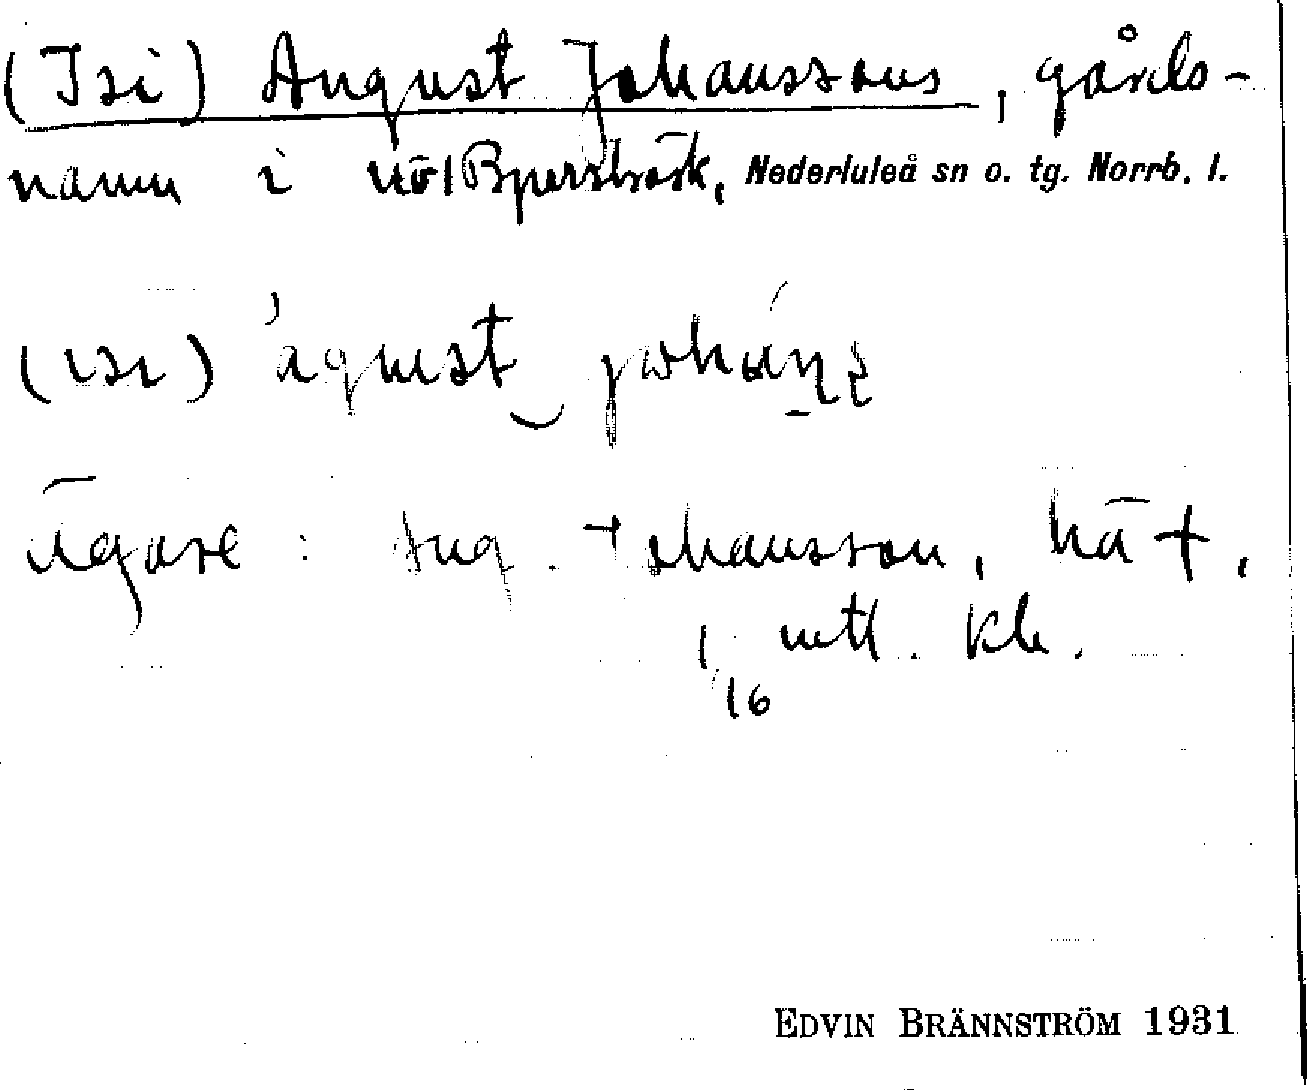 (Isi) August Johanssons, gårds-
namn i Nö/Bpersträsk, Nederluleå sn o. tg. Norrb. l.
(ısı) águst johánṣ
Ägare: Aug. Johansson, hä +,
1/16 mtl. kr.
EDVIN BRÄNNSTRÖM 1931